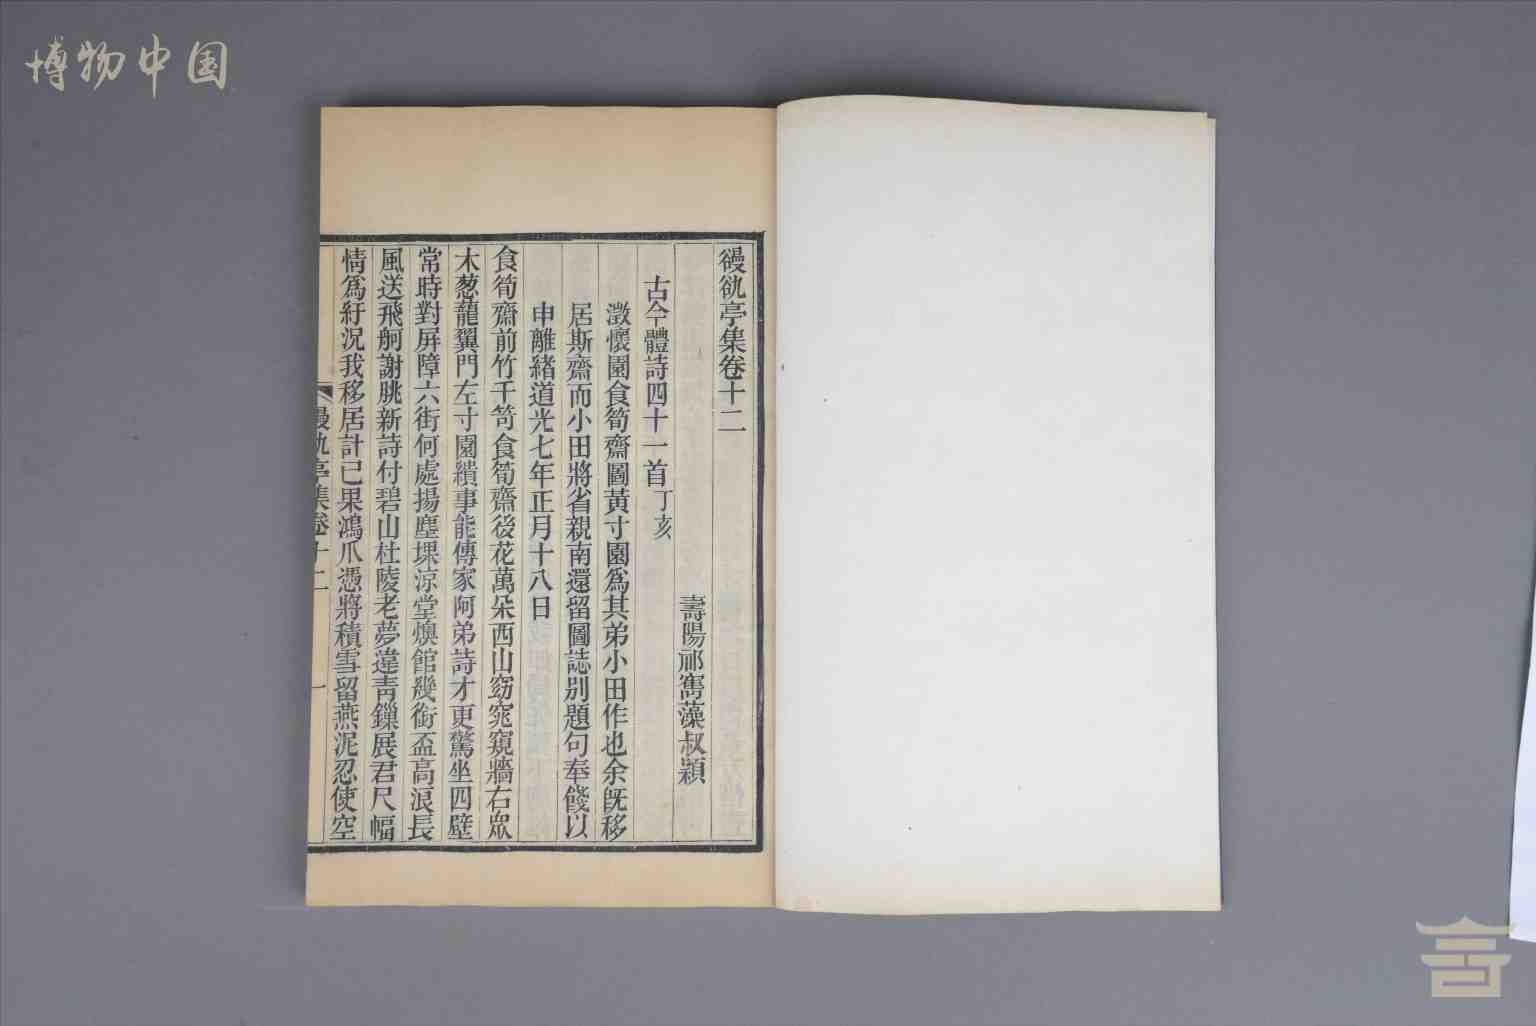 博物中国
䜱䜪亭集卷十二
壽陽祁寯藻叔穎
古今體詩四十一首丁亥
澂懷園食筍齋圖黃寸園爲其弟小田作也余旣移
居斯齋而小田將省親南還留圖誌別題句奉餞以
申離緒道光七年正月十八日
食筍齋前竹千竒食筍齋後花萬朵西山窈窕窺牆右眾
木葱蘢翼門左寸園繢事能傳家阿弟詩才更驚坐四壁
常時對屏障六街何處揚塵堁涼堂燠館幾銜盃高浪長
風送飛舸謝脁新詩付碧山杜陵老夢違靑鏁展君尺幅
情爲紆況我移居計已果鴻爪憑將積雪留燕泥忍使空
亭集卷十二
一